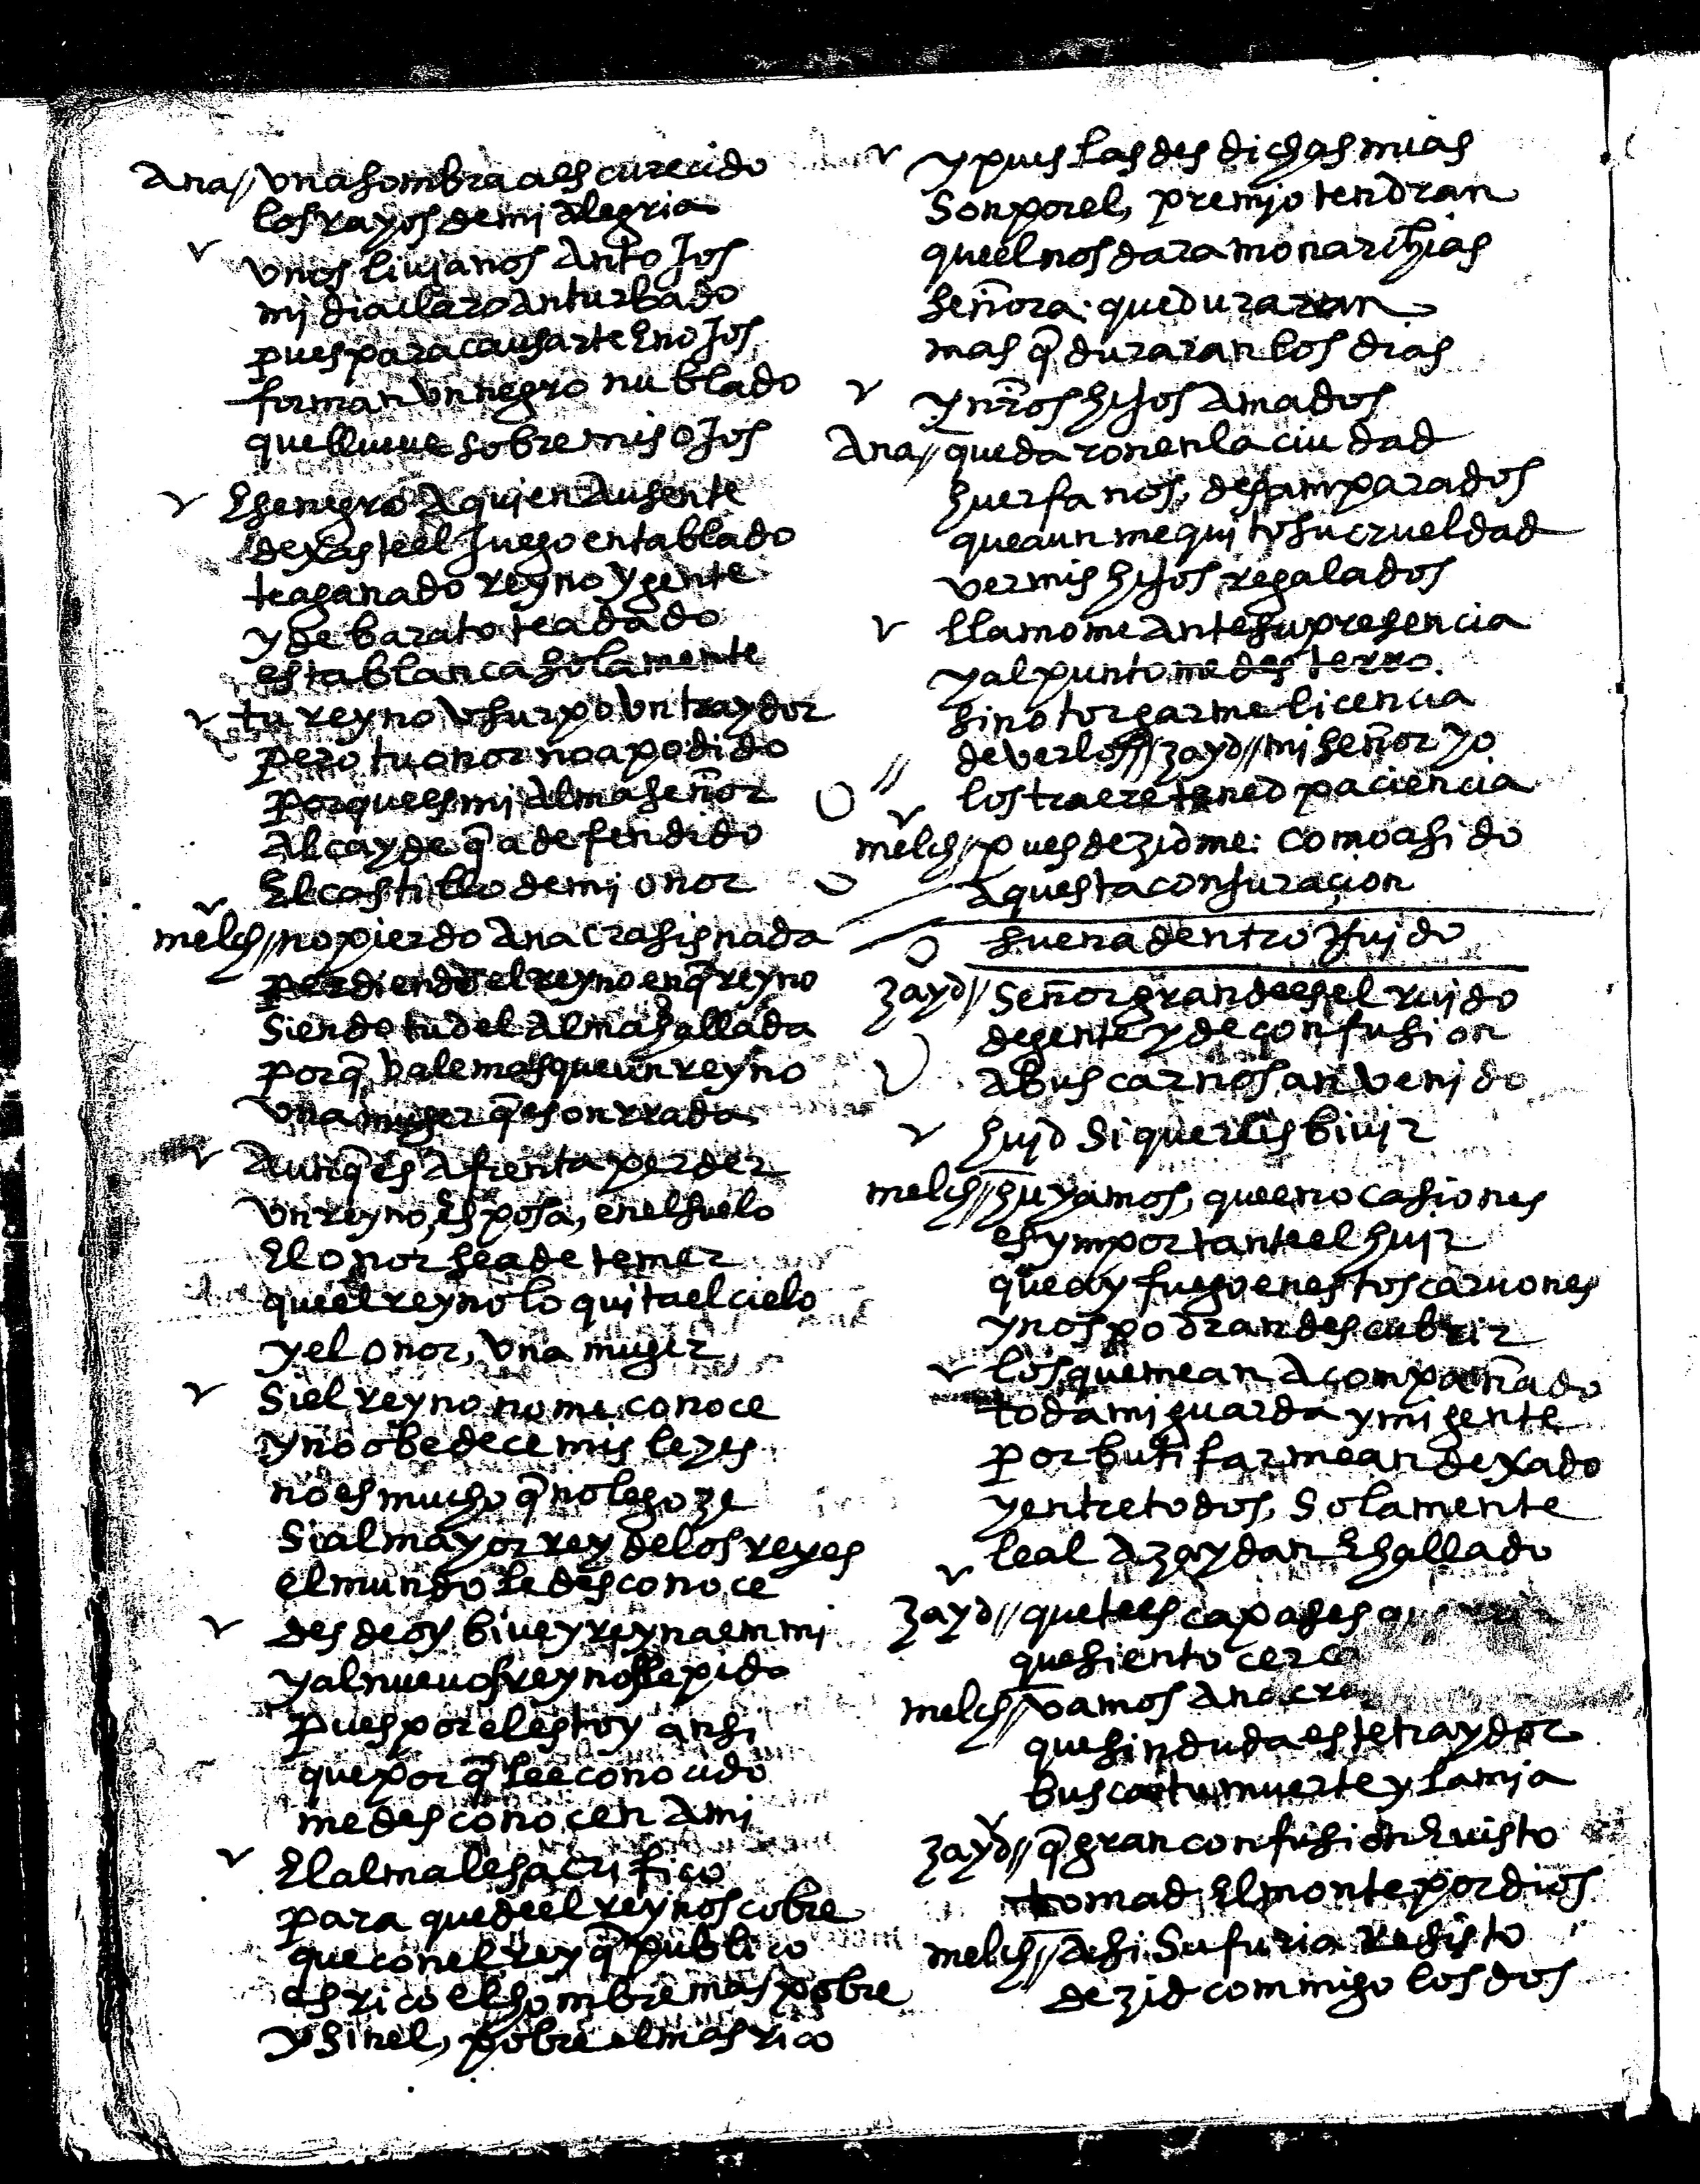 Ana // vna sombra a escurecido
los rayos de mi alegria
v vnos liujanos antojos
mi dia claro an turbado
pues para causarte enojos
forman vn negro nublado
que llueue sobre mis ojos
v Ese negro a quien ausente
dexaste el juego entablado
te a ganado reyno y gente
y de barato te a dado
esta blanca solamente
v tu reyno vsurpo vn traydor
pero tu onor no a podido
porque es mi alma señor
alcayde q̃ a defendido
El castillo de mi onor
v
melch // no pierdo anacrasis nada
perdiendo el reyno en q̃ reyno
siendo tu del alma hallada
porq̃ vale mas que un reyno
vna muger q̃ es onrrada
v Aunq̃ es afrenta perder
vn reyno, esposa, en el suelo
El onor se a de temer
que el reyno lo quita el cielo
y el onor, vna muger
v Si el reyno no me conoce
y no obedece mis leyes
no es mucho q̃ no le goze
Si al mayor rey de los reyes
el mundo le desconoce
v desde oy biue y reyna em mi
y al nueuo reyno le pido
pues por el estoy ansi
que por q̃ le e conocido
me desconocen a mi
v El alma le sacrifico
para que de el reynos cobre
que con el rey q̃ publico
es rico el hombre mas pobre
y sin el, pobre el mas rico
v y pues las desdichas mias
son por el, premjo tendran
que el nos dara monarchias
señora: que duraran
mas q̃ duraran los dias
v y nr̃os hijos amados
Ana // quedaron en la ciudad
huerfanos, desamparados
que aun me quito su crueldad
ver mis hijos regalados
v llamome ante su presencia
y al punto me desterro
sin otorgarme licencia
de verlos // zayd // mi señor yo
// los traere tened paciencia
v
melch // pues dezidme: como a sido
aquesta conjuracion
suena dentro Ruido
zayd // Señor grande es el ruido
de gente y de confusion
a buscarnos an venido
v huid si quereis biuir
melch // huyamos, que en ocasiones
es ymportante el huir
que ay fuego en estos caruones
y nos podran descubrir
v los que me an acompañado
toda mi guarda y mi gente
por butifar me an dexado
y entre todos, solamente
leal a zaydan E hallado
v
zayd // que te escapases
que siento cerca
melch // vamos
que sin duda este traydor
busca tu muerte y la mia
v
zayd // q̃ gran confusion E uisto
tomad el monte por dios
melch // asi su furia resisto
dezid commigo los dos